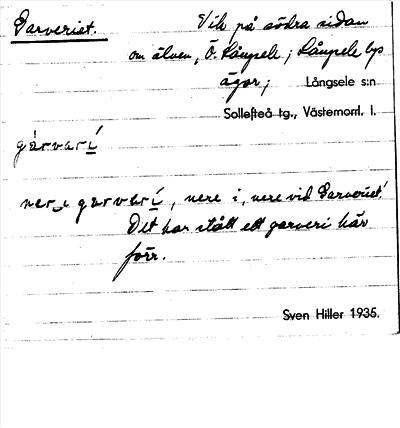 Garveriet. Vik på södra sidan
om älven, Ö. Långsele; Långsele bys
ägor; Långsele s:n
Sollefteå tg., Västernorrl. l.
garvarí
ner i garvarí, nere i, nere vid Garveriet!
Det har stått ett garveri här
förr.
Sven Hiller 1935.